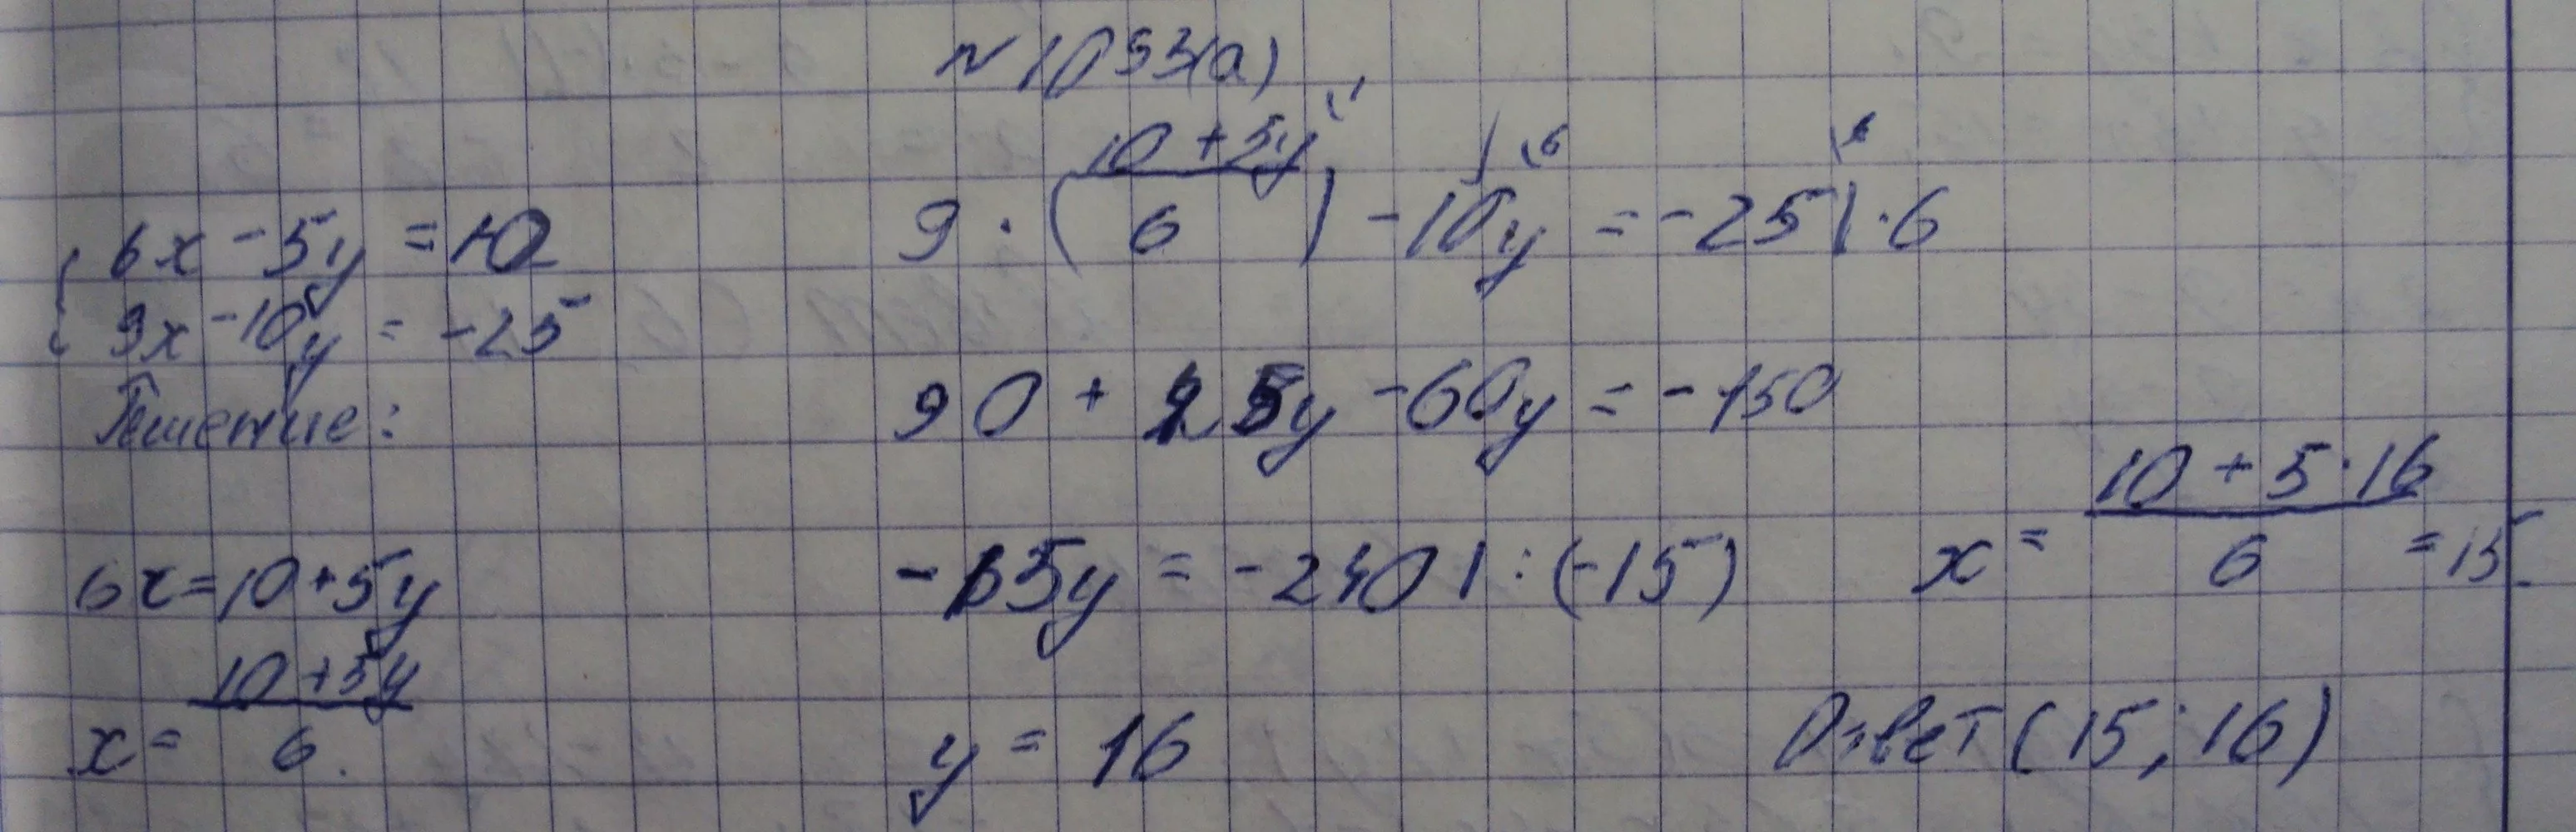 №1053(а)
{ 6x - 5y = 10
9x - 10y = -25
Решение:
6x = 10 + 5y
x = (10 + 5y)/6.
9 · ((10 + 5y)/6) - 10y = -25 | · 6
90 + 45y - 60y = -150
-15y = -240 | : (-15)
y = 16
x = (10 + 5 · 16)/6 = 15.
Ответ (15; 16)